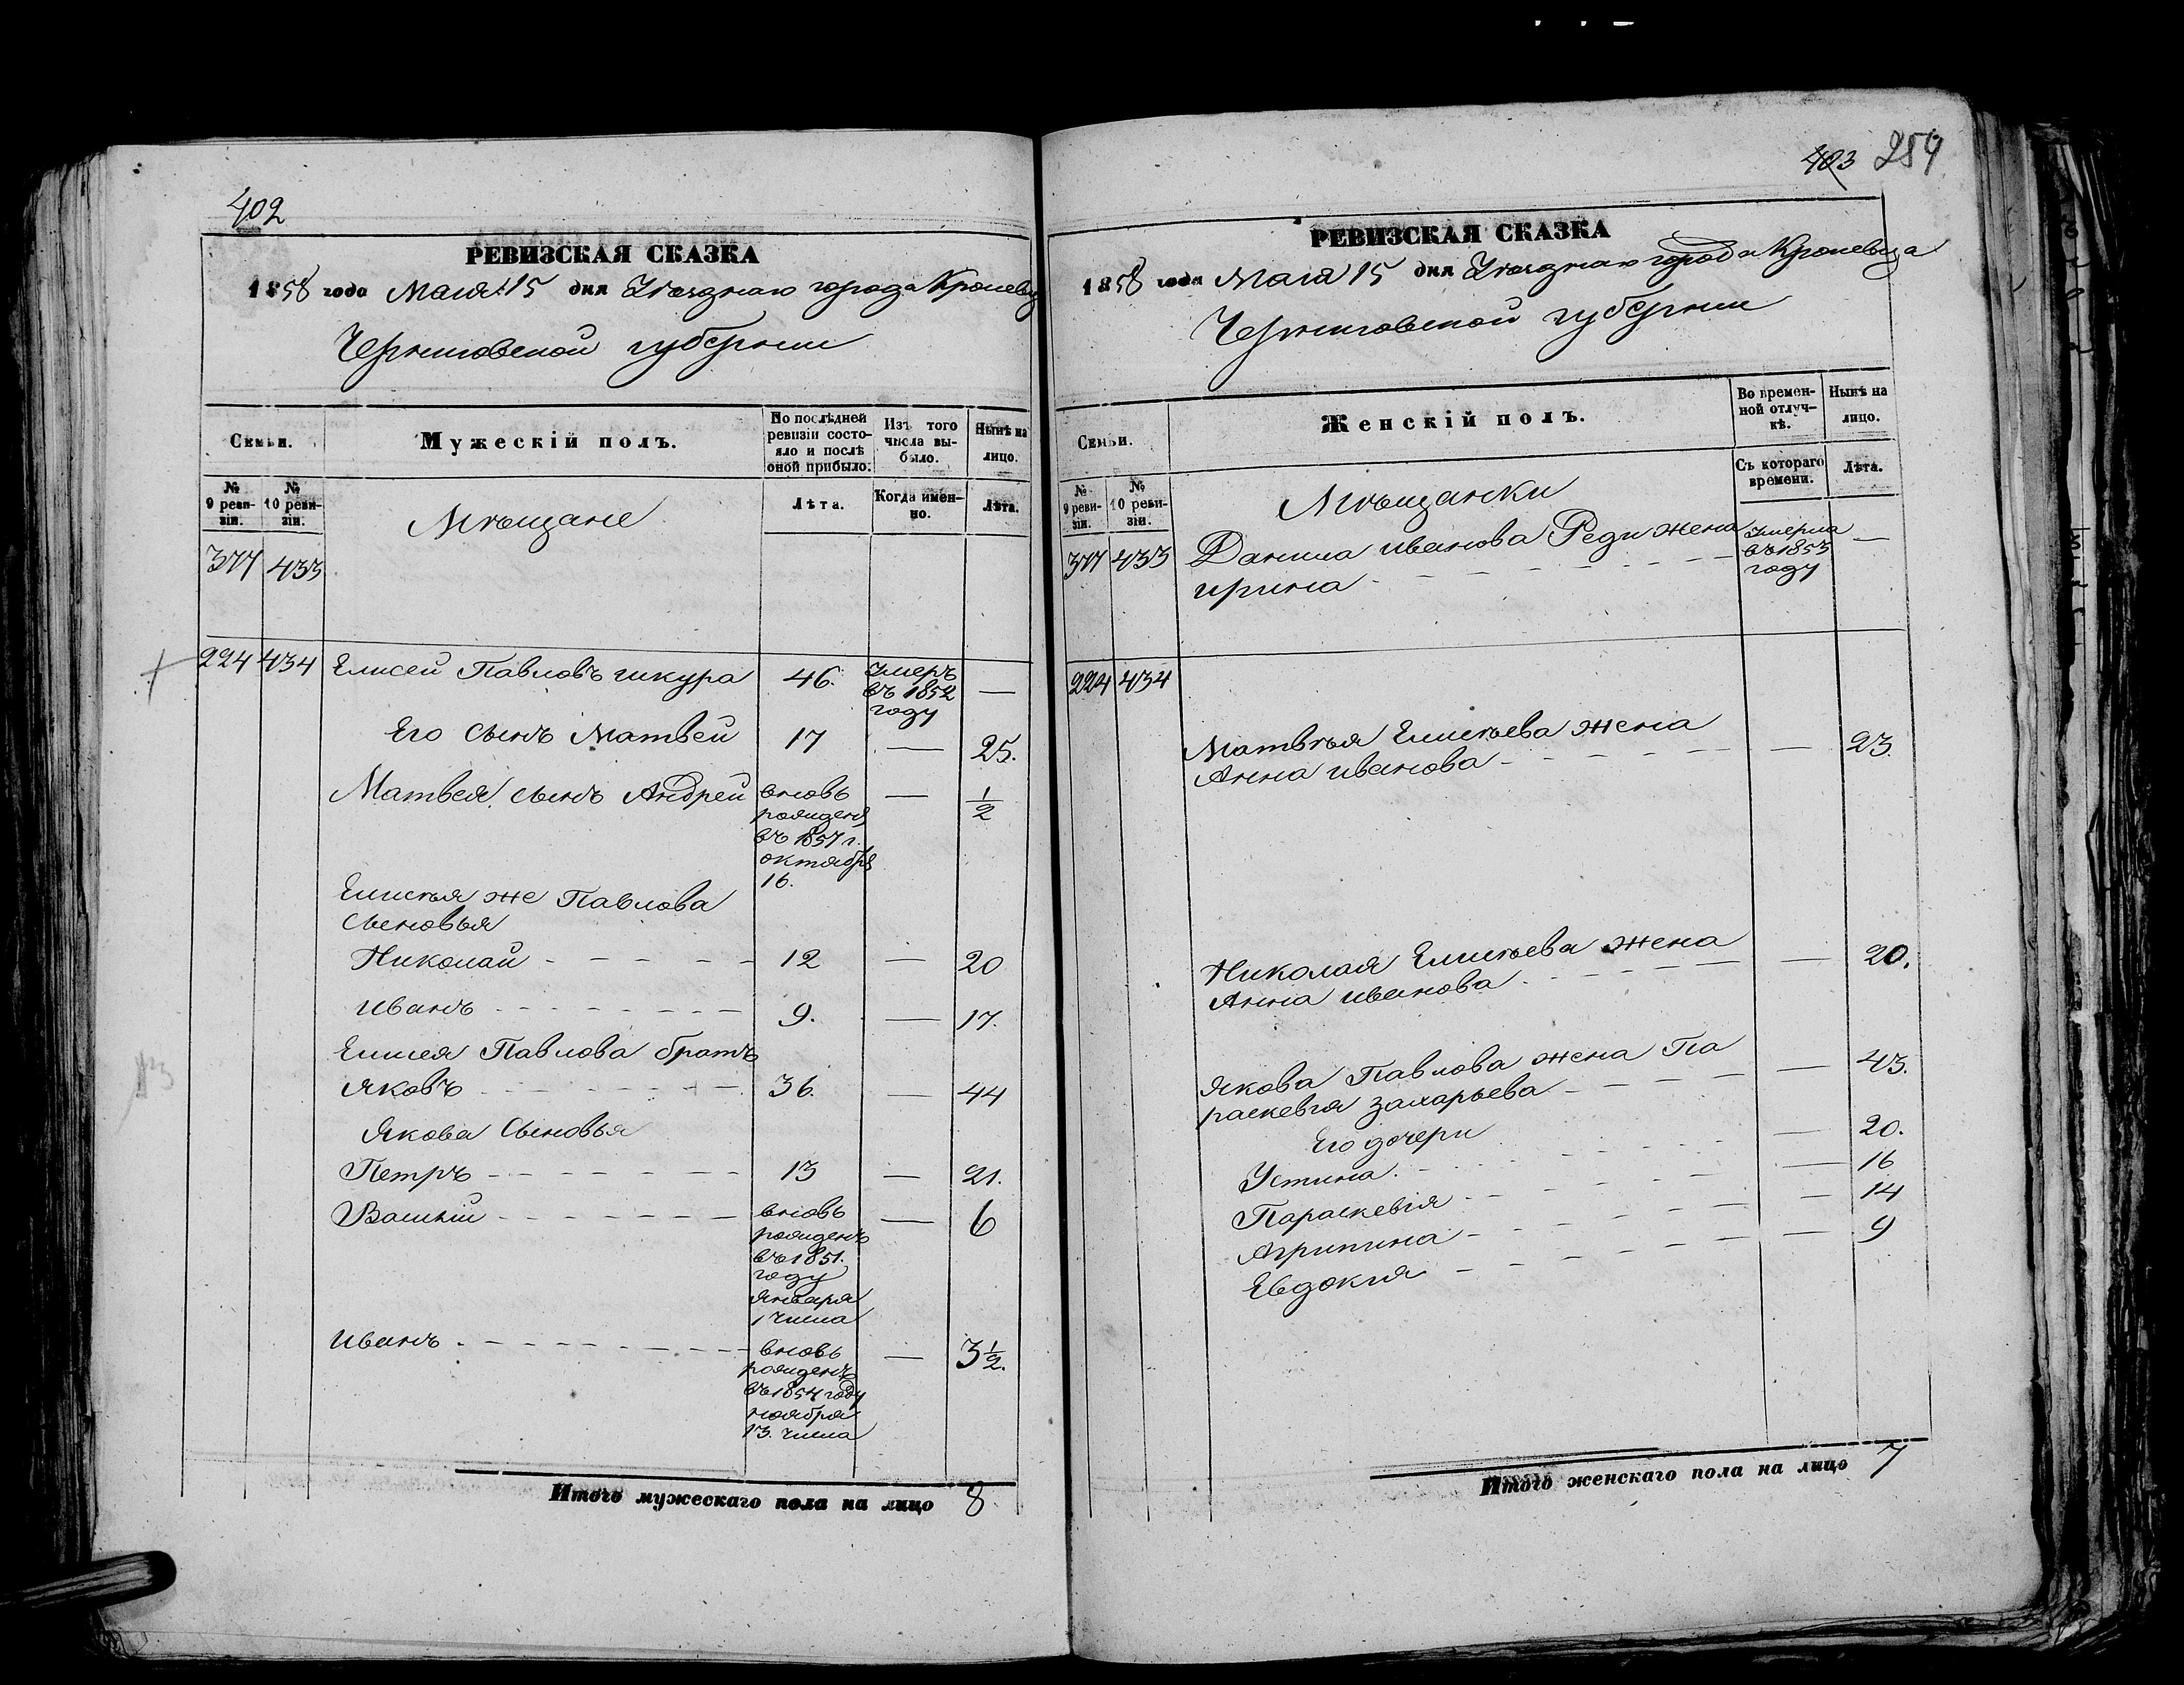 402
РЕВИЗСКАЯ СКАЗКА
1858 года Мая 15 дня Уѣзднаго города Кролевца
Черниговской губерніи
Семьи.
Мужескій полъ.
По послѣдней ревизіи состояло и послѣ оной прибыло.
Изъ того числа выбыло.
Нынѣ на лицо.
№ 9 ревизіи.
№ 10 ревизіи.
Мѣщане
Лѣта.
Когда именно.
Лѣта.
377 433
224 434 Елисей Павловъ шкура 46. Умеръ въ 1852 году —
Его Сынъ Матвей 17 — 25.
Матвея Сынъ Андрей вновь рожденъ въ 1857 г. октября 16. — 1/2
Елисѣя же Павлова
Сыновья
Николай 12 — 20
Иванъ 9. — 17.
Елисея Павлова братъ
Яковъ 36. — 44
Якова Сыновья
Петръ 13 — 21.
Василій вновь рожденъ въ 1851. году Января 1 числа — 6
Иванъ вновь рожденъ въ 1854 году ноября 13. числа — 3 1/2.
Итого мужескаго пола на лицо 8
403 254
РЕВИЗСКАЯ СКАЗКА
1858 года Мая 15 дня Уѣзднаго города Кролевца
Черниговской губерніи
Семьи.
Женскій полъ.
Во временной отлучкѣ.
Нынѣ на лицо.
№ 9 ревизіи.
№ 10 ревизіи.
Мѣщанки
Съ котораго времени.
Лѣта.
377 433 Данила иванова Реди жена Умерла въ 1853 году —
ирина
224 434
Матвѣя Елисѣева жена — 23.
Анна иванова
Николая Елисѣева жена — 20.
Анна иванова
Якова Павлова жена Па — 43.
раскевія захарьева
Его дочери
Устина — 20.
Параскевія — 16
Агрипина — 14
Евдокия — 9
Итого женскаго пола на лицо 7